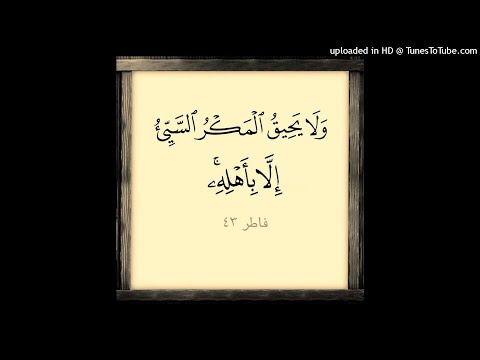 uploaded in HD @ TunesToTube.com
وَلَا يَحِيقُ ٱلْمَكْرُ ٱلسَّيِّئُ
إِلَّا بِأَهْلِهِۦۚ
فاطر ٤٣